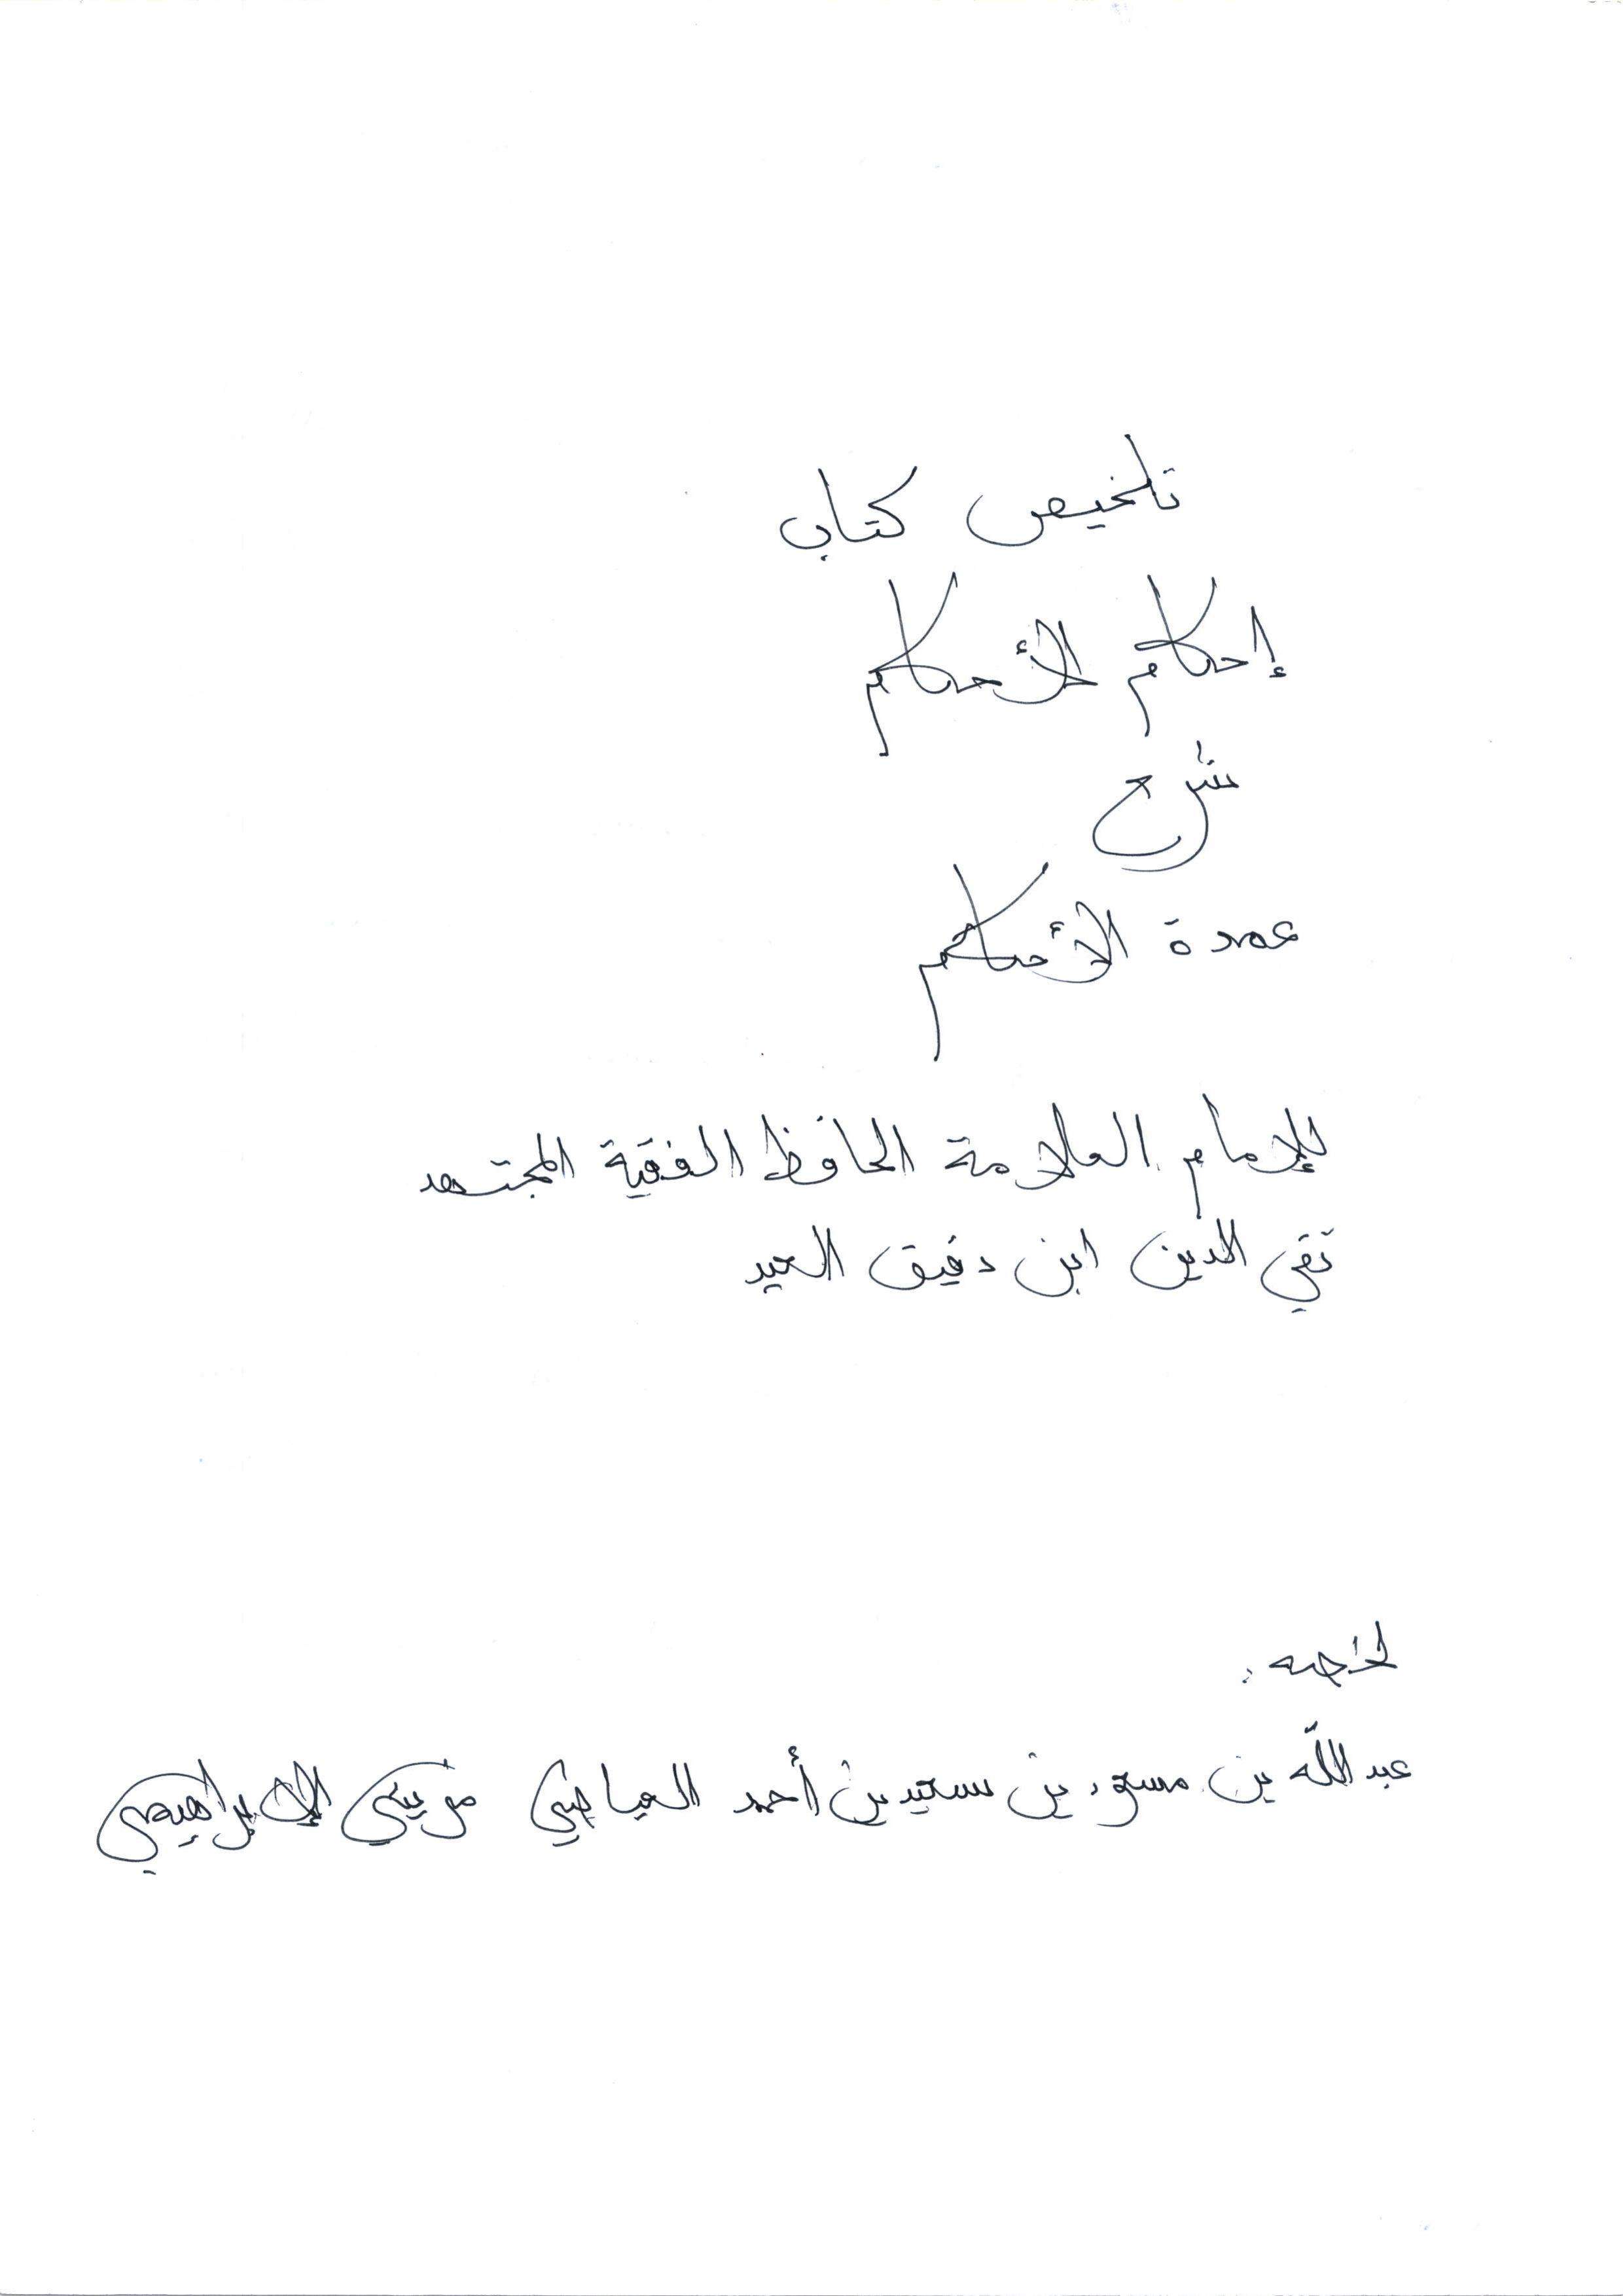 تلخيص كتاب
إحكام الأحكام
شرح
عمدة الأحكام
للإمام العلامة الحافظ الفقيه المجتهد
تقي الدين ابن دقيق العيد
لخصه :
عبد الله بن مسعود بن سعيد بن أحمد الإبراهيمي